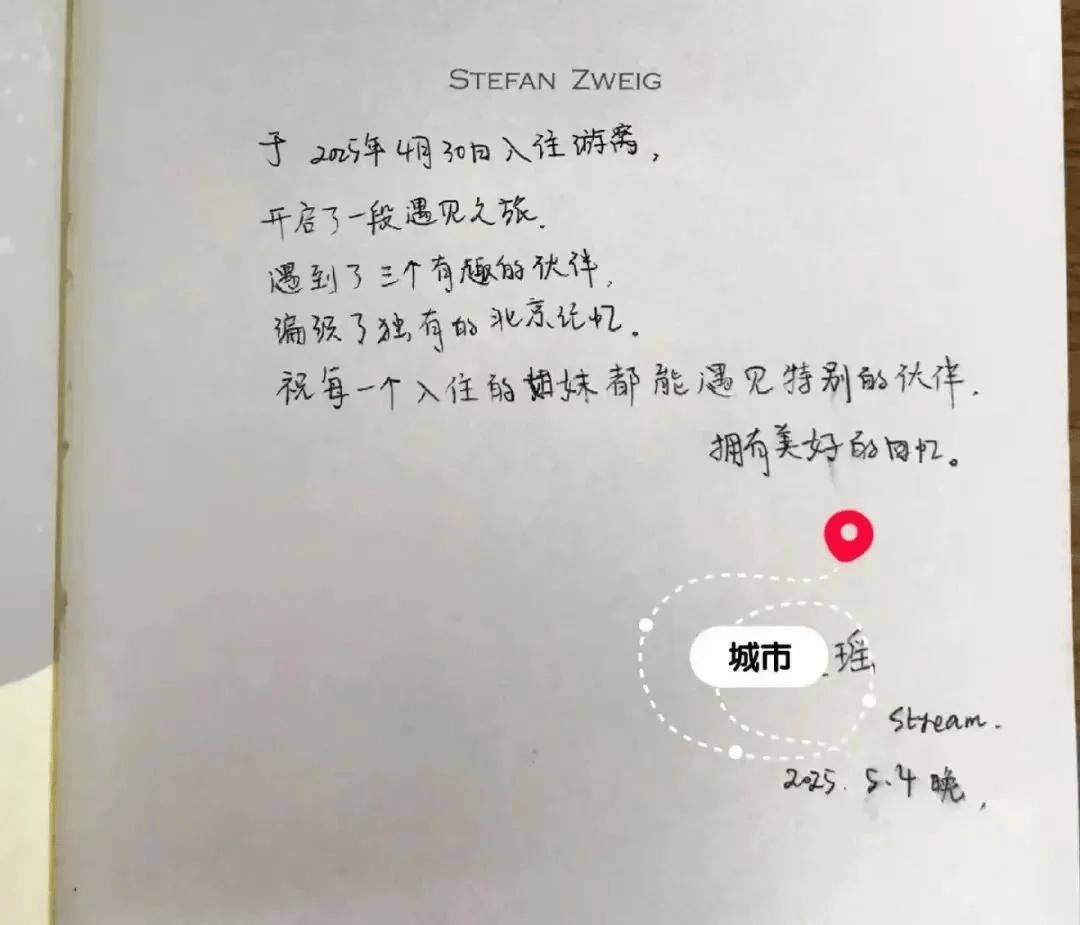 STEFAN ZWEIG
于 2025年4月30日入住游离,
开启了一段遇见之旅.
遇到了三个有趣的伙伴,
编织了独有的北京记忆。
祝每一个入住的姐妹都能遇见特别的伙伴.
拥有美好的回忆。
城市 瑶
Stream.
2025. 5.4 晚,